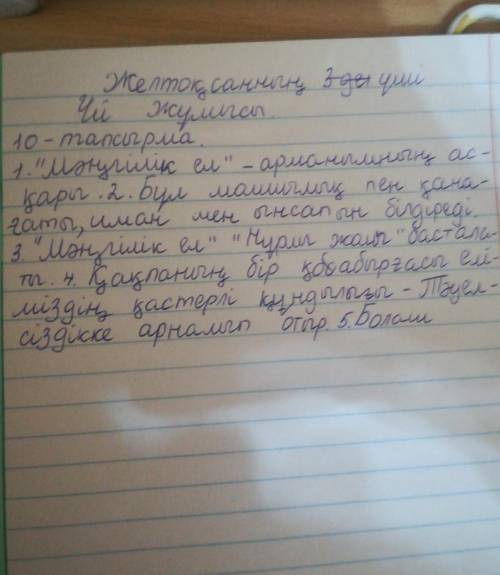 Желтоқсанның үші
Үй жұмысы.
10-тапсырма.
1. "Мәңгілік ел" - арманымның ас-
қары. 2. Бұл машықтық пен қана-
ғаты, иман мен ынсапын білдіреді.
3. "Мәңгілік ел" "Нұрлы жолы" бастала-
ты. 4. Қақпаның бір қабырғасы елі-
міздің қастерлі құндылығы - Тәуел-
сіздікке арналып отыр. 5. Болаш